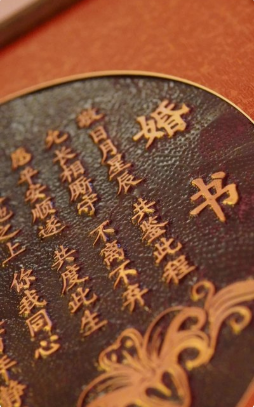 婚书
敬日月星辰
共鉴此程
长相厮守
不离不弃
愿平安顺遂
共度此生
之上
你我同心